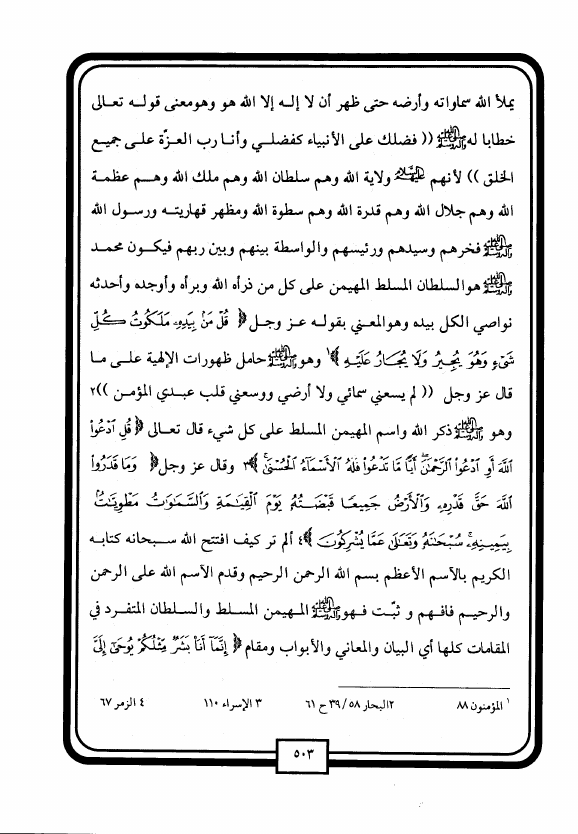 يملأ الله سماواته وأرضه حتى ظهر أن لا إله إلا الله هو وهومعنى قوله تعالى
خطابا له ﷺ (( فضلك على الأنبياء كفضلي وأنا رب العزّة على جميع
الخلق )) لأنهم عليهم السلام ولاية الله وهم سلطان الله وهم ملك الله وهم عظمة
الله وهم جلال الله وهم قدرة الله وهم سطوة الله ومظهر قهاريته ورسول الله
ﷺ فخرهم وسيدهم ورئيسهم والواسطة بينهم وبين ربهم فيكون محمد
ﷺ هوالسلطان المسلط المهيمن على كل من ذرأه الله وبرأه وأوجده وأحدثه
نواصي الكل بيده وهوالمعني بقوله عز وجل ﴿ قُلْ مَنْ بِيَدِهِ مَلَكُوتُ كُلِّ
شَيْءٍ وَهُوَ يُجِيرُ وَلَا يُجَارُ عَلَيْهِ ﴾١ وهو ﷺ حامل ظهورات الإلهية على ما
قال عز وجل (( لم يسعني سمائي ولا أرضي ووسعني قلب عبدي المؤمن ))٢
وهو ﷺ ذكر الله واسم المهيمن المسلط على كل شيء قال تعالى ﴿ قُلِ ادْعُوا
اللَّهَ أَوِ ادْعُوا الرَّحْمَٰنَ أَيًّا مَا تَدْعُوا فَلَهُ الْأَسْمَاءُ الْحُسْنَىٰ ﴾٣ وقال عز وجل ﴿ وَمَا قَدَرُوا
اللَّهَ حَقَّ قَدْرِهِ وَالْأَرْضُ جَمِيعًا قَبْضَتُهُ يَوْمَ الْقِيَامَةِ وَالسَّمَاوَاتُ مَطْوِيَّاتٌ
بِيَمِينِهِ سُبْحَانَهُ وَتَعَالَىٰ عَمَّا يُشْرِكُونَ ﴾٤ ألم تر كيف افتتح الله سبحانه كتابه
الكريم بالآسم الأعظم بسم الله الرحمن الرحيم وقدم الآسم الله على الرحمن
والرحيم فافهم و ثبّت فهو ﷺ المهيمن المسلط والسلطان المتفرد في
المقامات كلها أي البيان والمعاني والأبواب ومقام ﴿ إِنَّمَا أَنَا بَشَرٌ مِثْلُكُمْ يُوحَىٰ إِلَيَّ
١ المؤمنون ٨٨ ٢البحار ٥٨/ ٣٩ ح ٦١ ٣ الإسراء ١١٠ ٤ الزمر ٦٧
٥٠٣